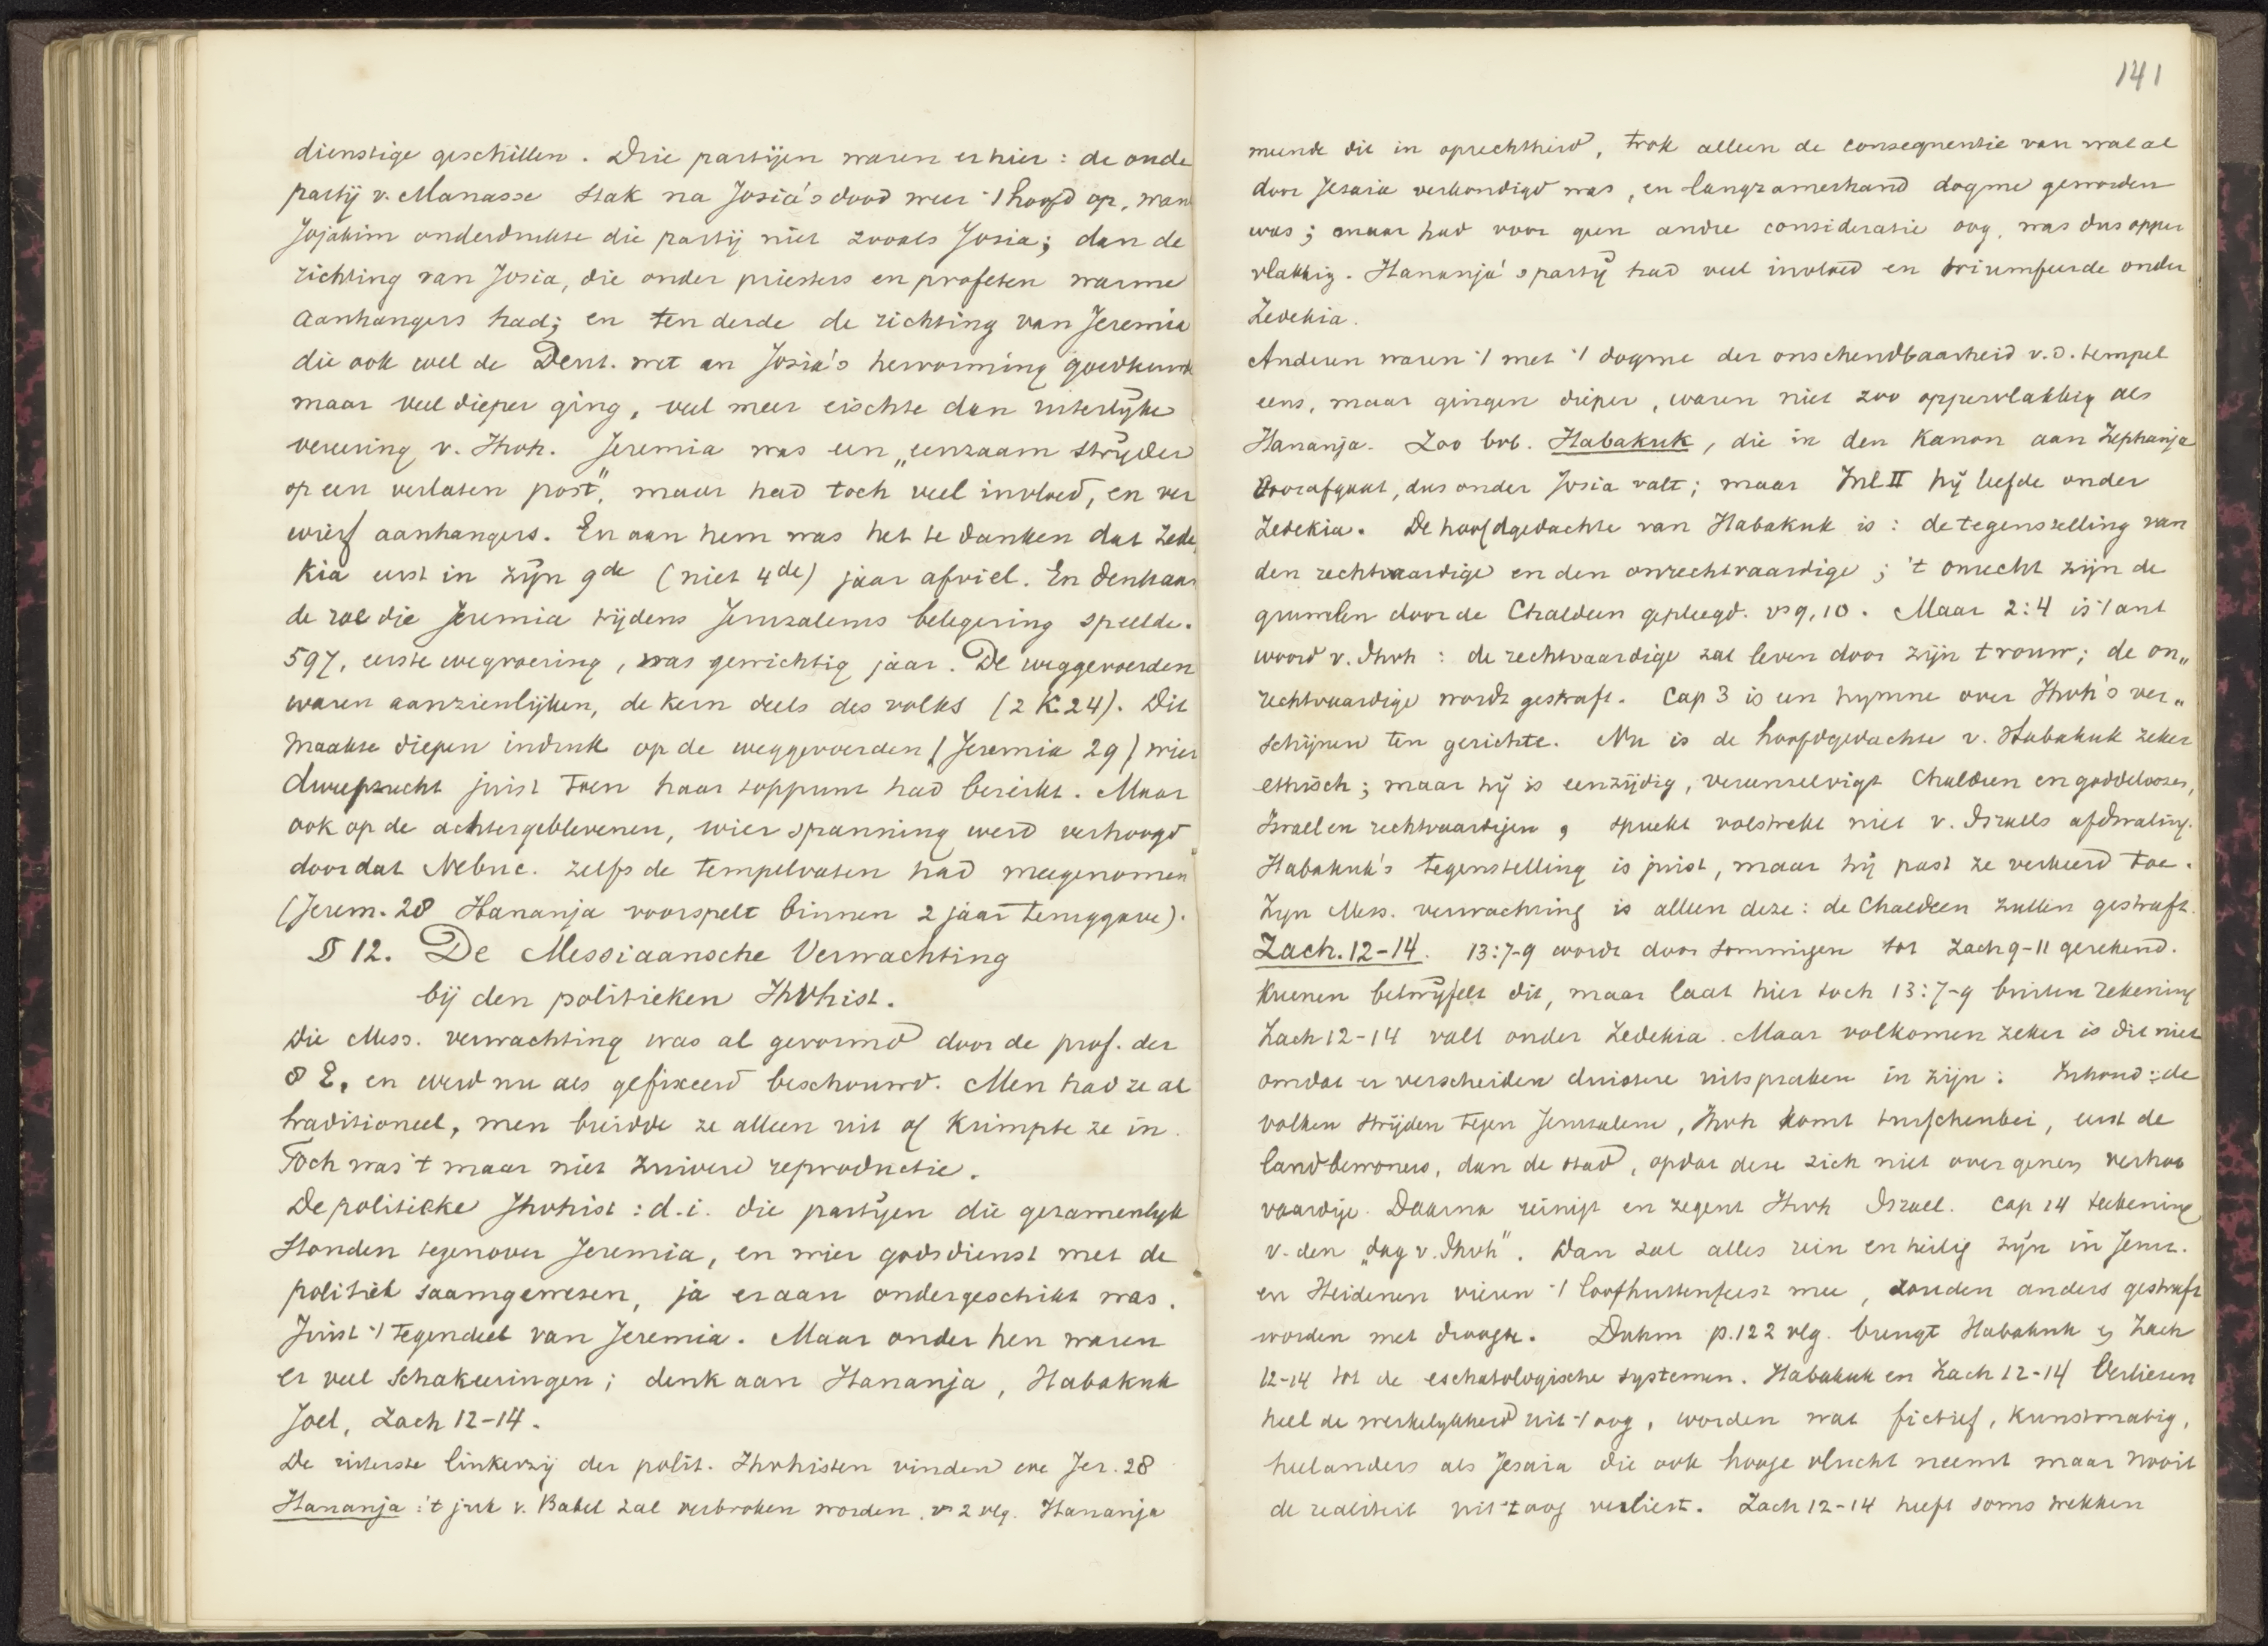 dienstige geschillen. Drie partijen waren er hier: de oude
partij v. Manasse stak na Josia's dood weer 't hoofd op, want
Jojakim onderdrukte die partij niet zooals Josia; dan de
richting van Josia, die onder priesters en profeten warme
aanhangers had; en ten derde de richting van Jeremia
die ook wel de Deut. wet en Josia's hervorming goedkeurde
maar veel dieper ging, veel meer eischte dan uiterlijke
vereering v. Jhvh. Jeremia was een „eenzaam strijder
op een verlaten post", maar had toch veel invloed, en ver
wierf aanhangers. En aan hem was het te danken dat Zede
kia eerst in zijn 9de (niet 4de) jaar afviel. En denk aan
de rol die Jeremia tijdens Jeruzalems belegering speelde.
597, eerste wegvoering, was gewichtig jaar. De weggevoerden
waren aanzienlijken, de kern deels des volks (2 K. 24). Dit
maakte diepen indruk op de weggevoerden (Jeremia 29) wier
dweepzucht juist toen haar toppunt had bereikt. Maar
ook op de achtergeblevenen, wier spanning werd verhoogd
doordat Nebuc. zelfs de tempelvaten had meegenomen
(Jerem. 28 Hananja voorspelt binnen 2 jaar teruggave).
§ 12. De Messiaansche Verwachting
bij den politieken Jhvhist.
Die Mess. verwachting was al gevormd door de prof. der
8 E, en werd nu als gefixeerd beschouwd. Men had ze al
traditioneel, men breidde ze alleen uit of krimpte ze in.
Toch was 't maar niet zuivere reproductie.
De politieke Jhvhist: d.i. die partijen die gezamenlijk
stonden tegenover Jeremia, en wier godsdienst met de
politiek saamgeweven, ja eraan ondergeschikt was.
Juist 't tegendeel van Jeremia. Maar onder hen waren
er veel schakeeringen; denk aan Hananja, Habakuk
Joel, Zach 12-14.
De uiterste linkerzij der polit. Jhvhisten vinden we Jer. 28
Hananja: 't juk v. Babel zal verbroken worden. vs 2 vlg. Hananja
141
meende dit in oprechtheid, trok alleen de consequentie van wat al
door Jesaia verkondigd was, en langzamerhand dogme geworden
was; maar had voor geen andre consideratie oog, was dus opper
vlakkig. Hananja's partij had veel invloed en triumfeerde onder
Zedekia.
Anderen waren 't met 't dogme der onschendbaarheid v.d. tempel
eens, maar gingen dieper, waren niet zoo oppervlakkig als
Hananja. Zoo bvb. Habakuk, die in den Kanon aan Zephanja
voorafgaat, dus onder Josia valt; maar Inl II hij leefde onder
Zedekia. De hoofdgedachte van Habakuk is: de tegenstelling van
den rechtvaardige en den onrechtvaardige; 't onrecht zijn de
gruwelen door de Chaldeen gepleegd. vs 9, 10. Maar 2:4 is 't ant
woord v. Jhvh: de rechtvaardige zal leven door zijn trouw; de on„
rechtvaardige wordt gestraft. Cap 3 is een hymne over Jhvh's ver„
schijnen ten gerichte. Nu is de hoofdgedachte v. Habakuk zeker
ethisch; maar hij is eenzijdig, vereenzelvigt Chaldeen en goddeloozen,
Israel en rechtvaardigen, spreekt volstrekt niet v. Israels afdwaling.
Habakuk's tegenstelling is juist, maar hij past ze verkeerd toe.
Zijn Mess. verwachting is alleen deze: de Chaldeen zullen gestraft.
Zach. 12-14. 13:7-9 wordt door sommigen tot Zach 9-11 gerekend.
Kuenen betwijfelt dit, maar laat hier toch 13:7-9 buiten rekening
Zach 12-14 valt onder Zedekia. Maar volkomen zeker is dit niet
omdat er verscheiden duistere uitspraken in zijn: Inhoud: de
volken strijden tegen Jeruzalem, Jhvh komt tusschenbei, eerst de
landbewoners, dan de stad, opdat deze zich niet over genen verhoo
vaardige. Daarna reinigt en zegent Jhvh Israel. Cap 14 teekening
v. den „dag v. Jhvh". Dan zal alles rein en heilig zijn in Jeruz.
en Heidenen vieren 't loofhuttenfeest mee, zouden anders gestraft
worden met droogte. Duhm p. 122 vlg. brengt Habakuk en Zach
12-14 tot de eschatologische systemen. Habakuk en Zach 12-14 verliezen
heel de werkelijkheid uit 't oog, worden wat fictief, kunstmatig,
heel anders als Jesaia die ook hooge vlucht neemt maar nooit
de realiteit uit 't oog verliest. Zach 12-14 heeft soms trekken